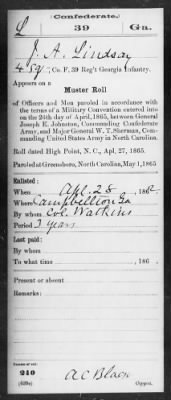 (Confederate.)
L 39 Ga.
J. A. Lindsay
4 Sg't, Co. F, 39 Reg't Georgia Infantry.
Appears on a
Muster Roll
of Officers and Men paroled in accordance with the terms of a Military Convention entered into on the 26th day of April, 1865, between General Joseph E. Johnston, Commanding Confederate Army, and Major General W. T. Sherman, Commanding United States Army in North Carolina.
Roll dated High Point, N. C., Apl. 27, 1865.
Paroled at Greensboro, North Carolina, May 1, 1865
Enlisted:
When Apl. 28, 1862.
Where Campbellton Ga
By whom Col. Watkins
Period 3 years
Last paid:
By whom
To what time , 186 .
Present or absent
Remarks:
210
(639e)
A C Black
Copyist.